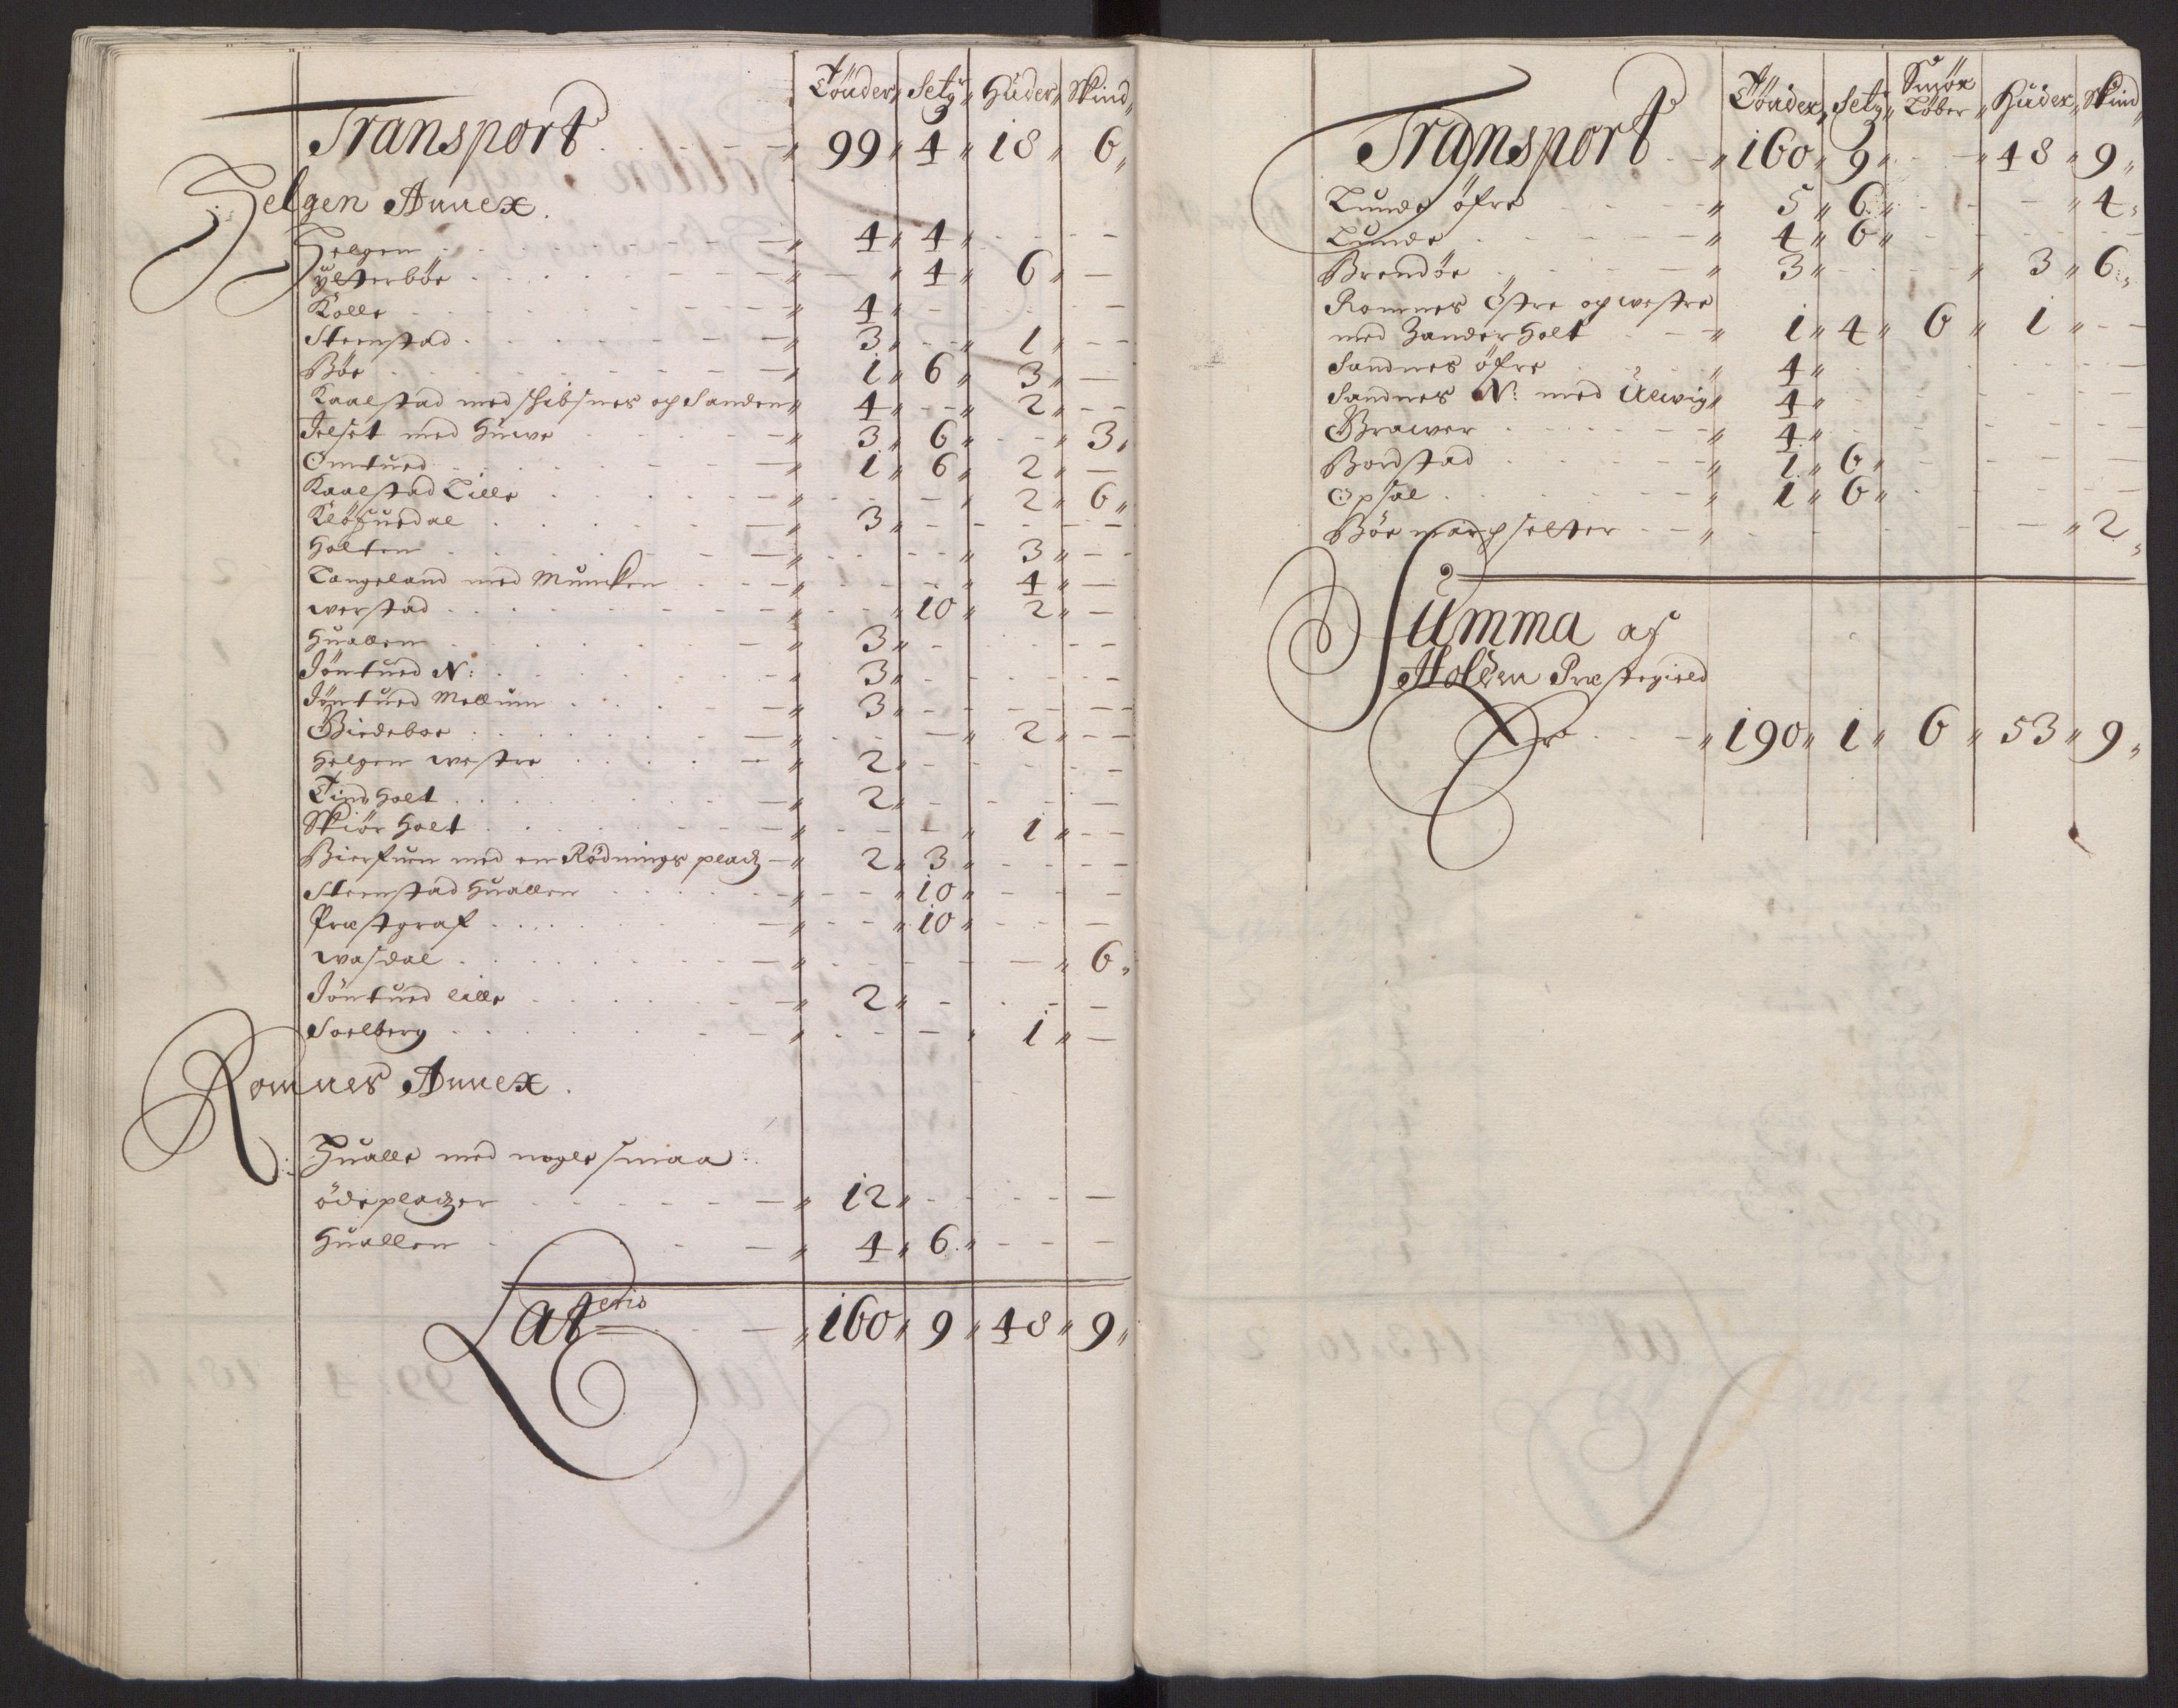 Tönder Setg Hüder Skind
Transport 99 4 18 6
Helgen Annex.
Helgen 4 4
Ytterböe 4 6
Kolle 4
Steenstad 3 1
Böe 1 6 3
Kaalstad med Skibsnes og Sanden 4 2
Jelset med Huwe 3 6 3
Omtued 1 6 2
Kaalstad Lille 2 6
Klöfuedal 3
Holten 3
Langeland med Muncken 4
werstad 10 2
Huallen 3
Jöntued N: 3
Jöntued Mellum 3
Birdeboe 2
Helgen westre 2
Tindholt 2
Skiörholt 1
Bierfuen med en Rödnings pladz 2 3
Steenstad Huallen 10
Præstgraf 10
wasdal 6
Jöntued lille 2
Soelberg 1
Romnes Annex.
Hualle med nogle smaa
ödepladzer 12
Huallen 4 6
Lateris 160 9 48 9
Tönder Setg Smör Løber Hüder Skind
Transport 160 9 48 9
Lunde öfre 5 6 4
Lunde 4 6
Brendöe 3 3 6
Romnes Östre og westre
med Zanderholt 1 4 6 1
Sandnes öfre 4
Sandnes N: med Ulewig 4
Grawer 4
Bordstad 1 6
Opsal 1 6
Böe selter 2
Summa af
Holden Præstegield
Er 190 1 6 53 9